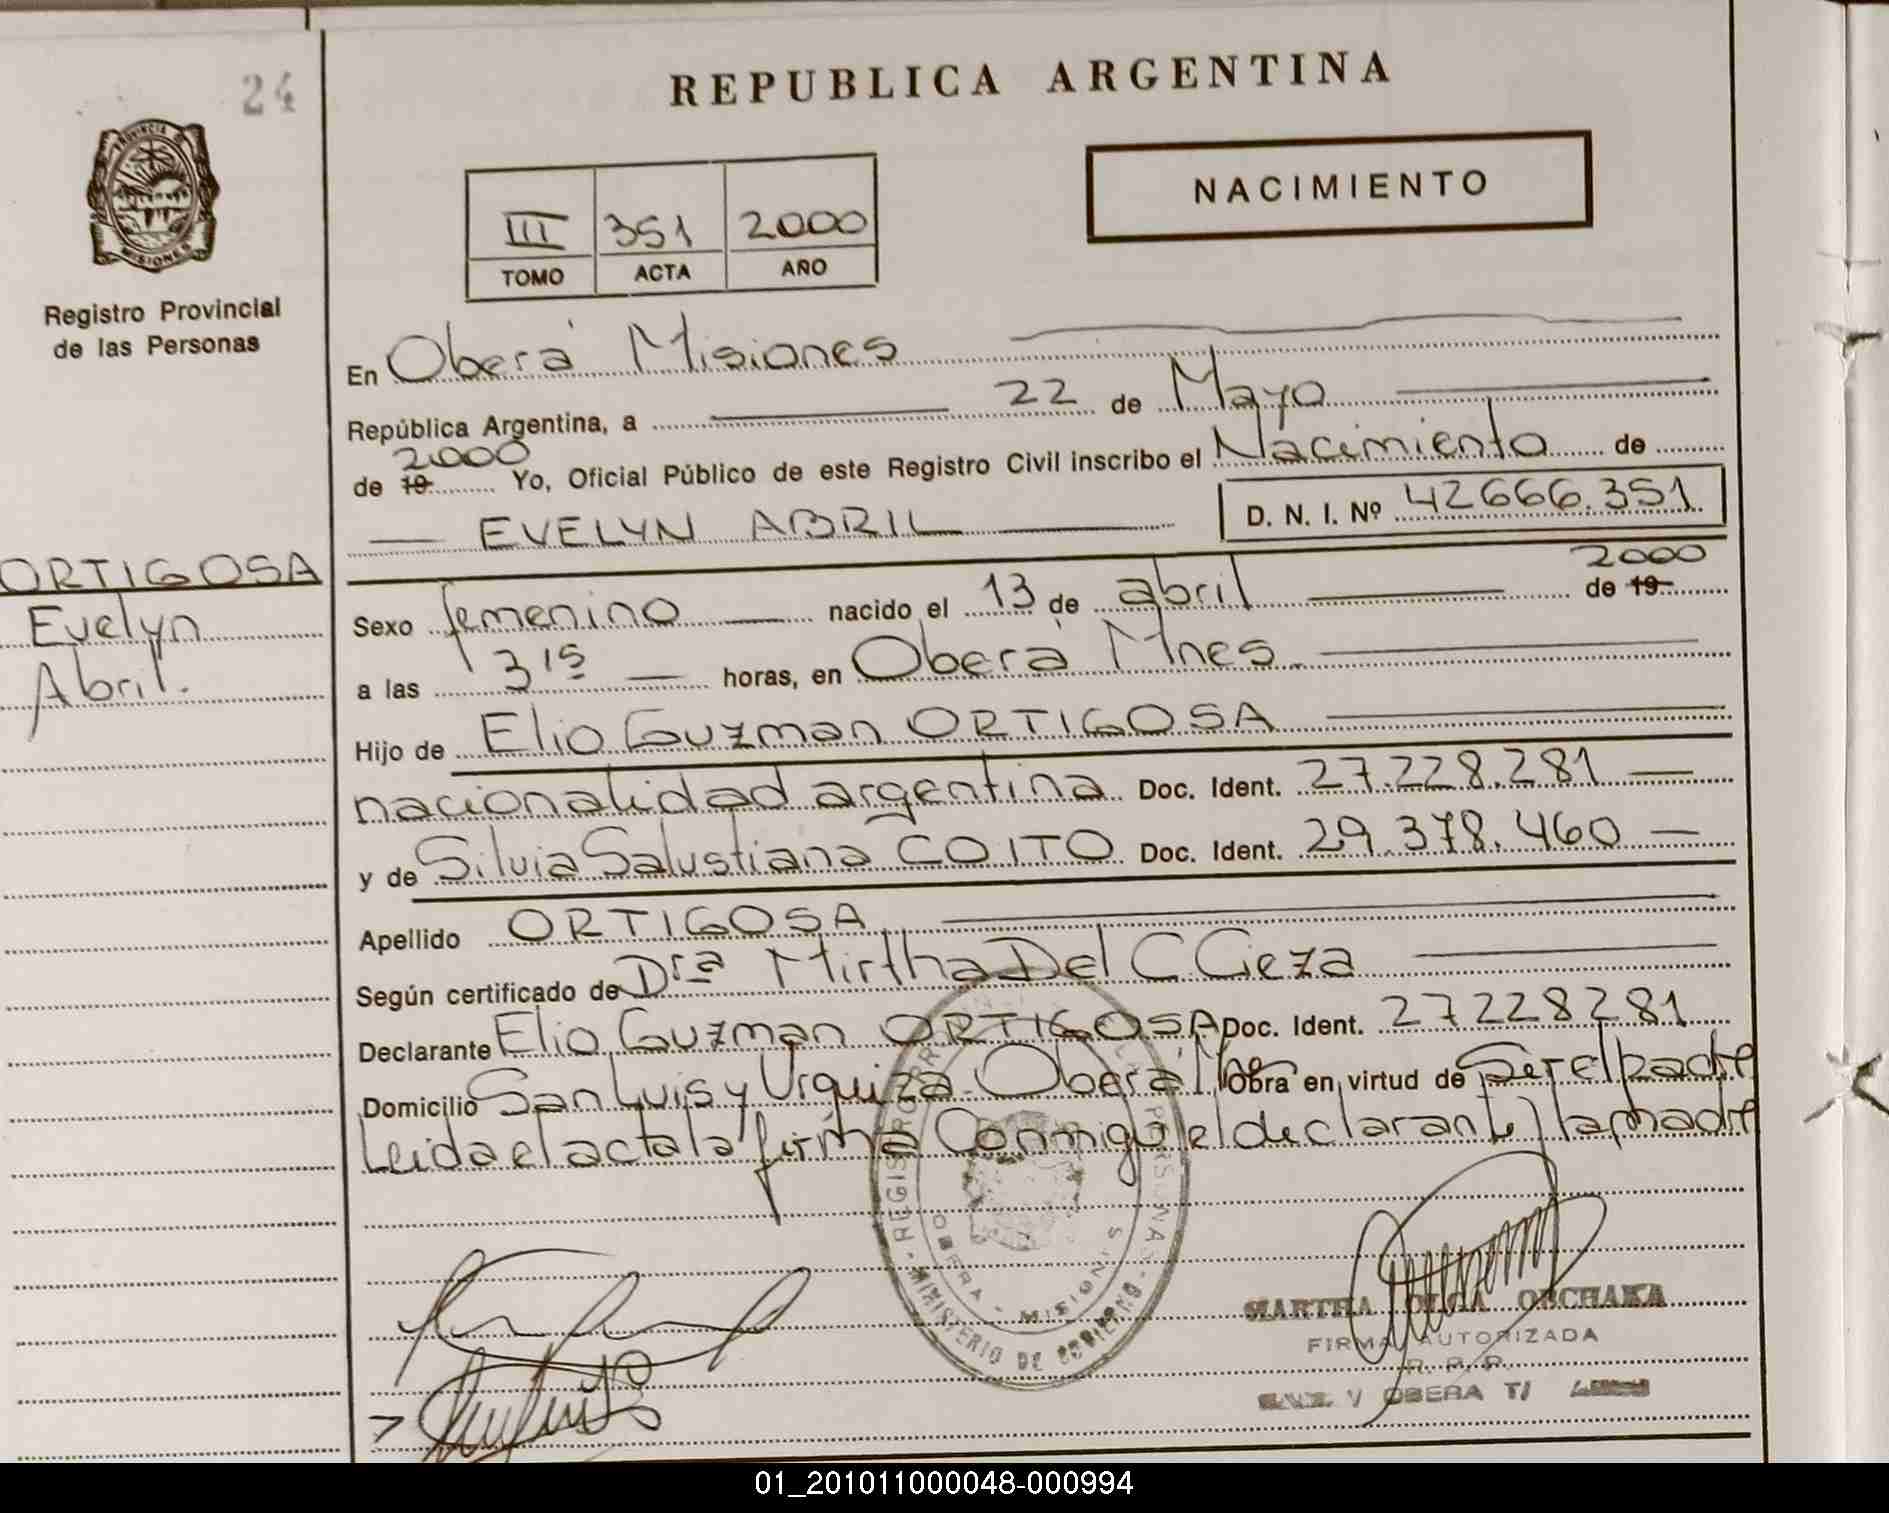 24
REPUBLICA ARGENTINA
PROVINCIA DE
MISIONES
Registro Provincial
de las Personas
NACIMIENTO
III 351 2000
TOMO ACTA AÑO
En Oberá Misiones
República Argentina, a 22 de Mayo
2000
de 19 Yo, Oficial Público de este Registro Civil inscribo el Nacimiento de
EVELYN ABRIL D. N. I. Nº 42666.351
ORTIGOSA
Evelyn
Abril.
2000
Sexo femenino nacido el 13 de abril de 19
a las 3 15 horas, en Oberá Mnes.
Hijo de Elio Guzman ORTIGOSA
nacionalidad argentina Doc. Ident. 27.228.281
y de Silvia Salustiana COITO Doc. Ident. 29.378.460
Apellido ORTIGOSA
Según certificado de Dra Mirtha Del C Cieza
Declarante Elio Guzman ORTIGOSA Doc. Ident. 27228281
Domicilio San Luis y Urquiza - Oberá Mnes Obra en virtud de Ser el padre
Leida el acta la firma Conmigo el declarante y la madre
OBERA - MISIONES
MINISTERIO DE GOBIERNO
MARTHA OLGA OBCHAKA
FIRMA AUTORIZADA
R. P. P.
OBERA
01_201011000048-000994